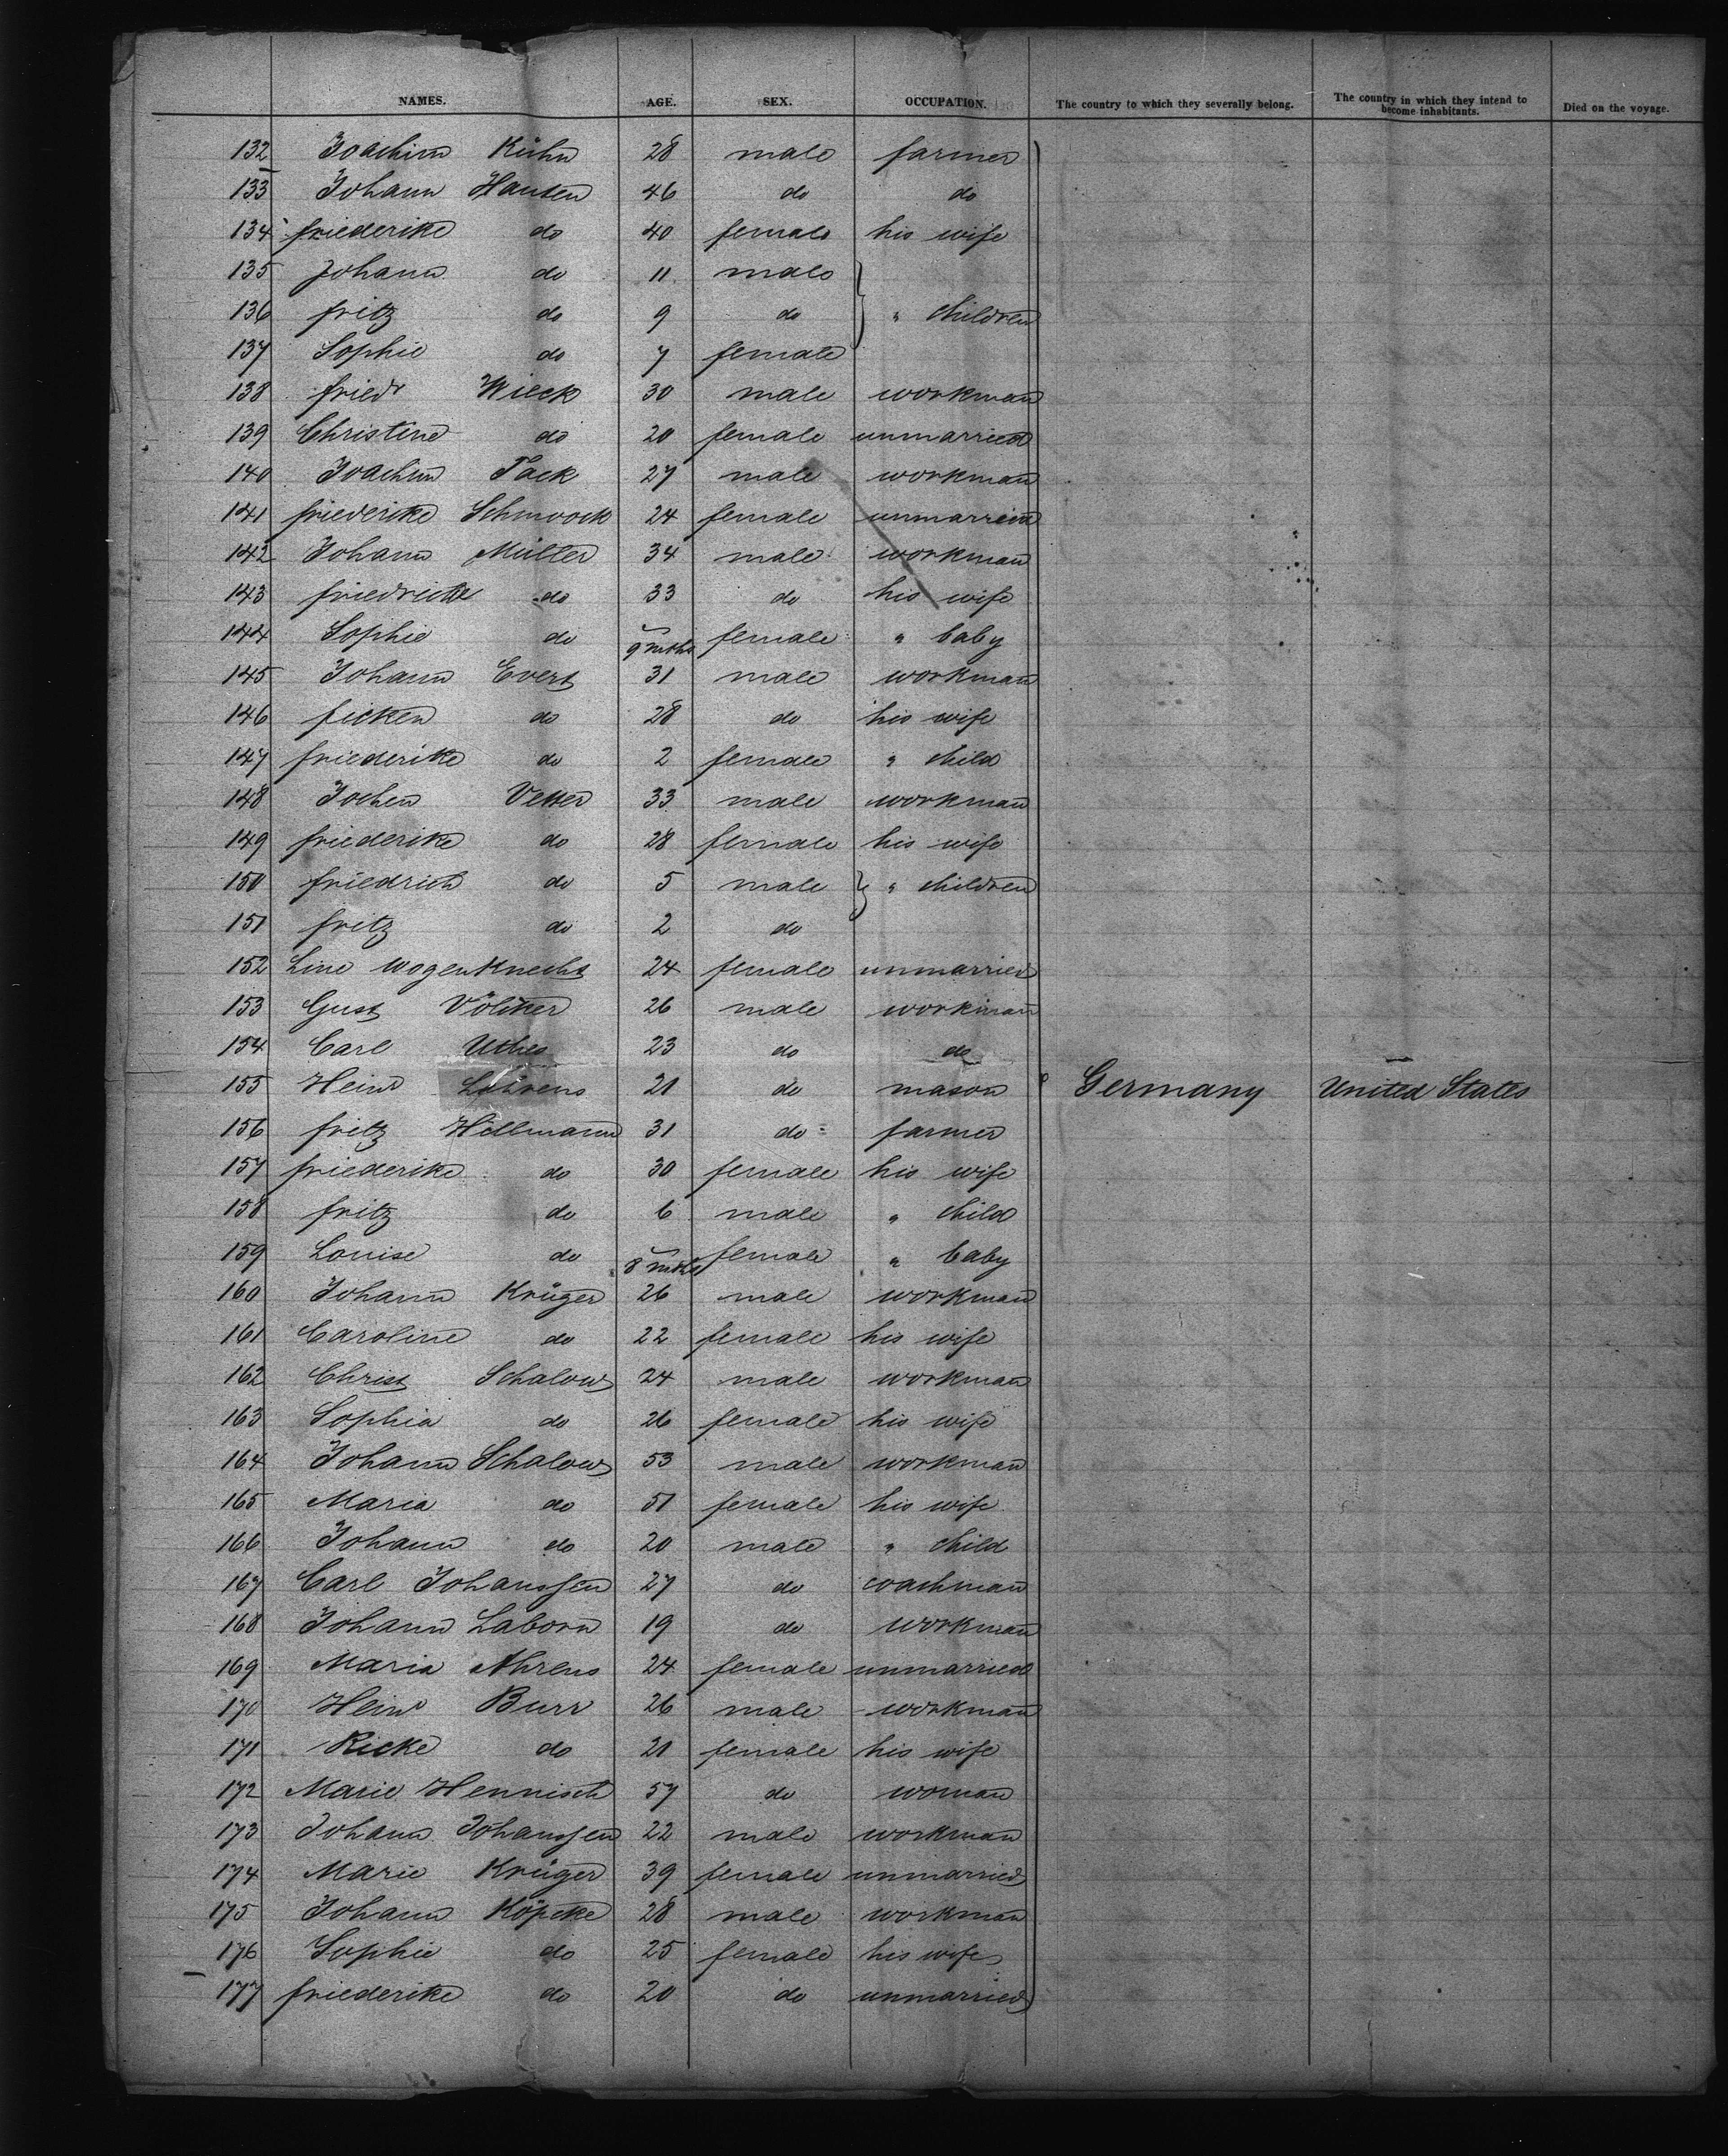 NAMES. AGE. SEX. OCCUPATION. The country to which they severally belong. The country in which they intend to become inhabitants. Died on the voyage.
132 Joachim Kühn 28 male farmer
133 Johann Hansen 46 do do
134 friederike do 40 female his wife
135 Johann do 11 male
136 fritz do 9 do " children
137 Sophie do 7 female
138 friedr Wieck 30 male workman
139 Christine do 20 female unmarried
140 Joachim Tack 27 male workman
141 friederike Schmoock 24 female unmarried
142 Johann Müller 34 male workman
143 friedricke do 33 do his wife
144 Sophie do 9 mths female " baby
145 Johann Evert 31 male workman
146 ficken do 28 do his wife
147 friederike do 2 female " child
148 Jochen Vetter 33 male workman
149 friederike do 28 female his wife
150 friedrich do 5 male " children
151 fritz do 2 do
152 Line Wogenknecht 24 female unmarried
153 Gust Völker 26 male workman
154 Carl Uthes 23 do do
155 Heinr 21 do mason Germany United States
156 fritz Hellmann 31 do farmer
157 friederike do 30 female his wife
158 fritz do 6 male " child
159 Louise do 8 mths female " baby
160 Johann Krüger 26 male workman
161 Caroline do 22 female his wife
162 Christ Schalow 24 male workman
163 Sophia do 26 female his wife
164 Johann Schalow 53 male workman
165 Maria do 51 female his wife
166 Johann do 20 male " child
167 Carl Johanssen 27 do coachman
168 Johann Laborn 19 do workman
169 Maria Ahrens 24 female unmarried
170 Heinr Burr 26 male workman
171 Ricke do 21 female his wife
172 Marie Hennisch 57 do woman
173 Johann Johanssen 22 male workman
174 Marie Krüger 39 female unmarried
175 Johann Köpcke 28 male workman
176 Sophie do 25 female his wife
177 friederike do 20 do unmarried